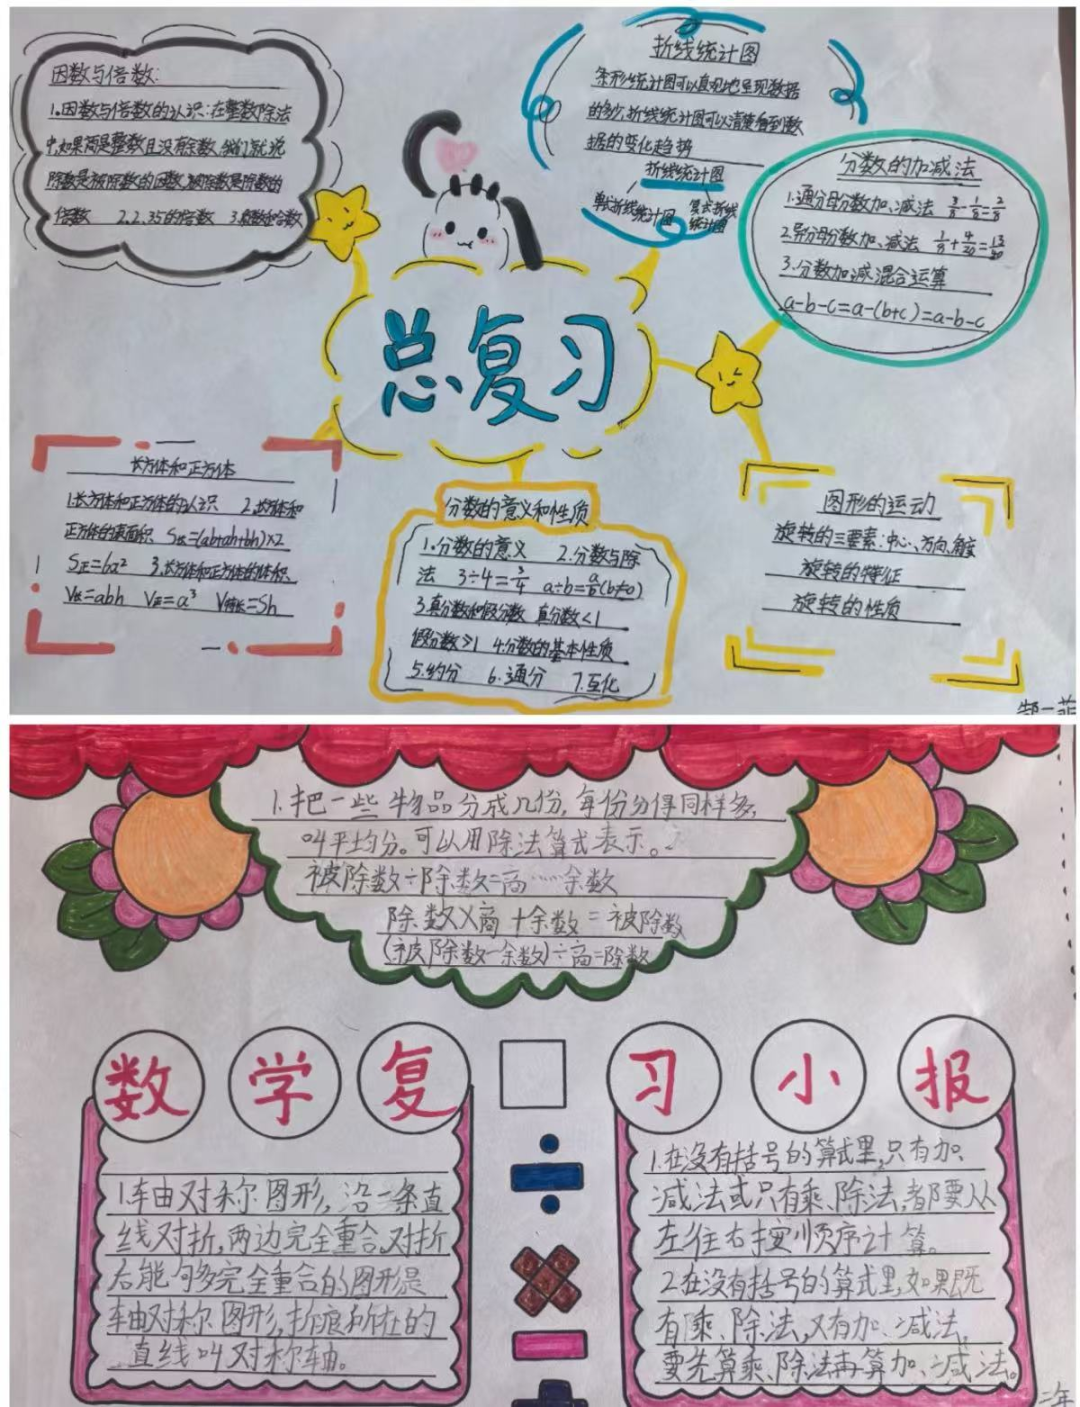 因数与倍数:
1.因数与倍数的认识:在整数除法
中,如果商是整数且没有余数,我们就说
除数是被除数的因数,被除数是除数的
倍数 2.2.3.5的倍数 3.质数和合数
折线统计图
条形统计图可以直观地呈现数据
的多少,折线统计图可以清楚看到数
据的变化趋势
折线统计图
单式折线统计图
复式折线
统计图
分数的加减法
1.通分母分数加、减法 3/8-1/8=2/8
2.异分母分数加、减法
3.分数加减混合运算
a-b-c=a-(b+c)=a-b-c
总复习
长方体和正方体
1.长方体和正方体的认识 2.长方体和
正方体的表面积 S长=(ab+ah+bh)×2
S正=6a² 3.长方体和正方体的体积
V长=abh V正=a³ =Sh
分数的意义和性质
1.分数的意义 2.分数与除
法 3÷4=3/4 a÷b=a/b(b≠0)
3.真分数和假分数 真分数<1
假分数≥1 4.分数的基本性质
5.约分 6.通分 7.互化
图形的运动
旋转的三要素:中心、方向、角度
旋转的特征
旋转的性质
1.把一些物品分成几份,每份分得同样多,
叫平均分。可以用除法算式表示。
被除数÷除数=商……余数
除数×商+余数=被除数
(被除数-余数)÷商=除数
数学复习小报
1.轴对称图形,沿一条直
线对折,两边完全重合,对折
后能够多完全重合的图形是
轴对称图形,折痕所在的
直线叫对称轴。
1.在没有括号的算式里,只有加、
减法或只有乘、除法,都要从
左往右按顺序计算。
2.在没有括号的算式里,如果既
有乘、除法,又有加、减法,
要先算乘、除法再算加、减法。
二年